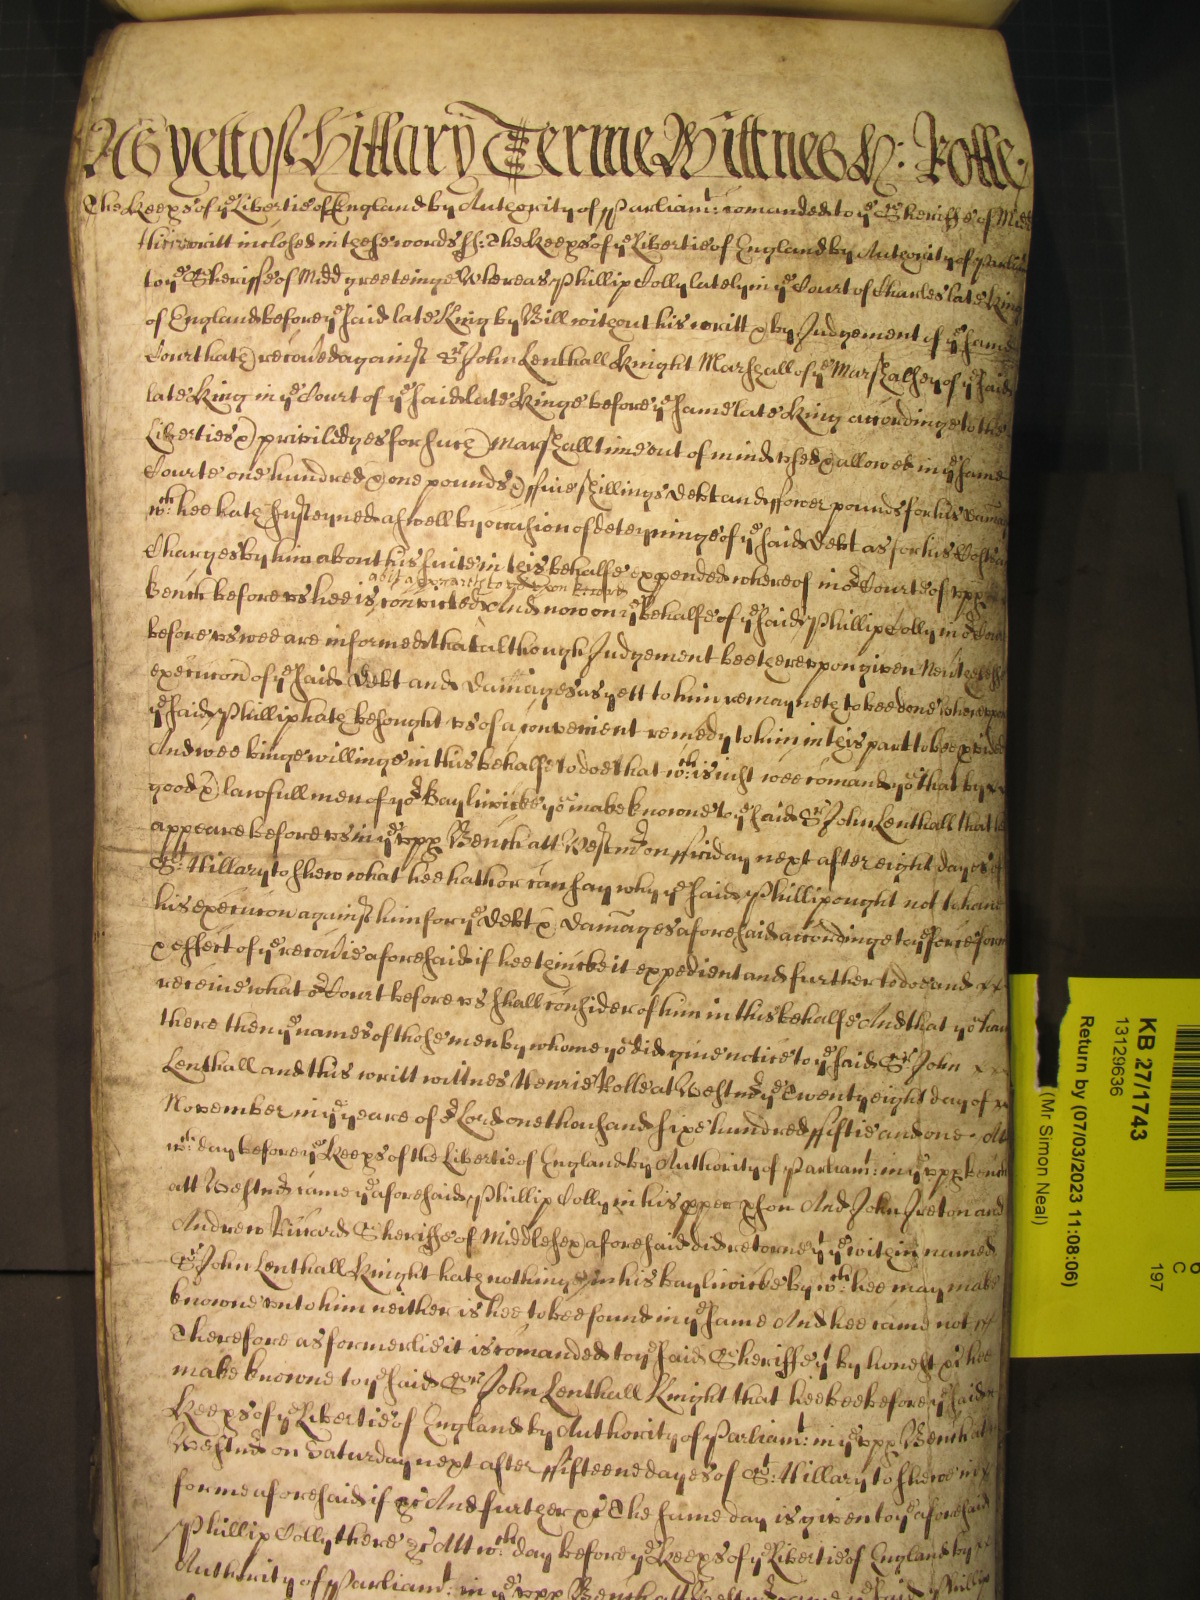 As yett of Hillary Terme Wittnes H: Rolle.
The Keeps of ye Libertie of England by Autority of Parliamt: comanded to ye Sheriffe of Midd
their writt inclosed in these words ss: The Keeps of ye Libertie of England by Autority of Parliam
to ye Sheriffe of Midd greetinge Whereas Phillip Colly lately in ye Court of Charles late King
of England before ye said late King by Bill without his writt & by Judgement of ye same
Court hath recoved against Sr John Lenthall Knight Marshall of ye Marshalsey of ye said
late King in ye Court of ye said late Kinge before ye same late King accordinge to the
Liberties & priviledges for such Marshall time out of mind vsed & allowed in ye same
Courte one hundred & one pounds & ffive shillings debt and ffower pounds for his Damag
wch: hee hath susteyned aswell by occasion of deteyninge of ye said Debt as for his Costs &
Charges by him about his suite in this behalfe expended whereof in or Court of vpp
Bench before vs hee is convicted And now on ye behalfe of ye said Phillip Colly in or Court
before vs wee are informed that although Judgement bee thereuppon given Neverthelesse
execucon of ye said Debt and Damages as yett to him remayneth to bee done whereuppon
ye said Phillip hath besought vs of a convenient remedy to him in this part to bee pvided
And wee beinge willinge in this behalfe to doe that wch: is iust wee comand yo that by
good & lawfull men of yor Bayliwicke yo make knowne to ye said Sr John Lenthall that he
appeare before vs in ye vpp Bench att Westmr on ffriday next after eight dayes of
St: Hillary to shew what hee hath or can say why ye said Phillip ought not to have
his execucon against him for ye Debt & Damages aforesaid accordinge to ye force forme
& effect of ye recovie aforesaid if hee thincke it expedient and further to doe and
receive what or Court before vs shall consider of him in this behalfe And that yo have
there then ye names of those men by whome yo did give notice to ye said Sr John
Lenthall and this writt wittnes Henrie Rolle at Westmr ye Twenty eight day of
November in ye yeare of or Lord one thousand sixe hundred ffiftie and one. Att
wch: day before ye Keeps of the Libertie of England by Authority of Parliamt: in ye vpp Bench
att Westmr came ye aforesaid Phillip Colly in his pper pson And John Ireton and
Andrew Riccard Sheriffe of Middlesex aforesaid did retorne yt ye within named
Sr John Lenthall Knight hath nothinge in his bayliwicke by wch: hee may make
knowne vnto him neither is hee to bee found in ye same And hee came not
Therefore as formerlie it is comanded to ye said Sheriffe yt by honest &c hee
make knowne to ye said Sr John Lenthall Knight that hee bee before ye said
Keeps of ye Libertie of England by Authority of Parliamt: in ye vpp Bench at
Westmr on Saturday next after ffifteene dayes of St: Hillary to shewe in
forme aforesaid if &c And further &c The same day is given to ye aforesaid
Phillip Colly there &c Att wch: day before ye Keeps of ye Libertie of England by
Authority of Parliamt: in ye vpp Bench att Westmr came ye said Phillip
KB 27/1743
13129636
Return by (07/03/2023 11:08:06)
(Mr Simon Neal)
197
C
6